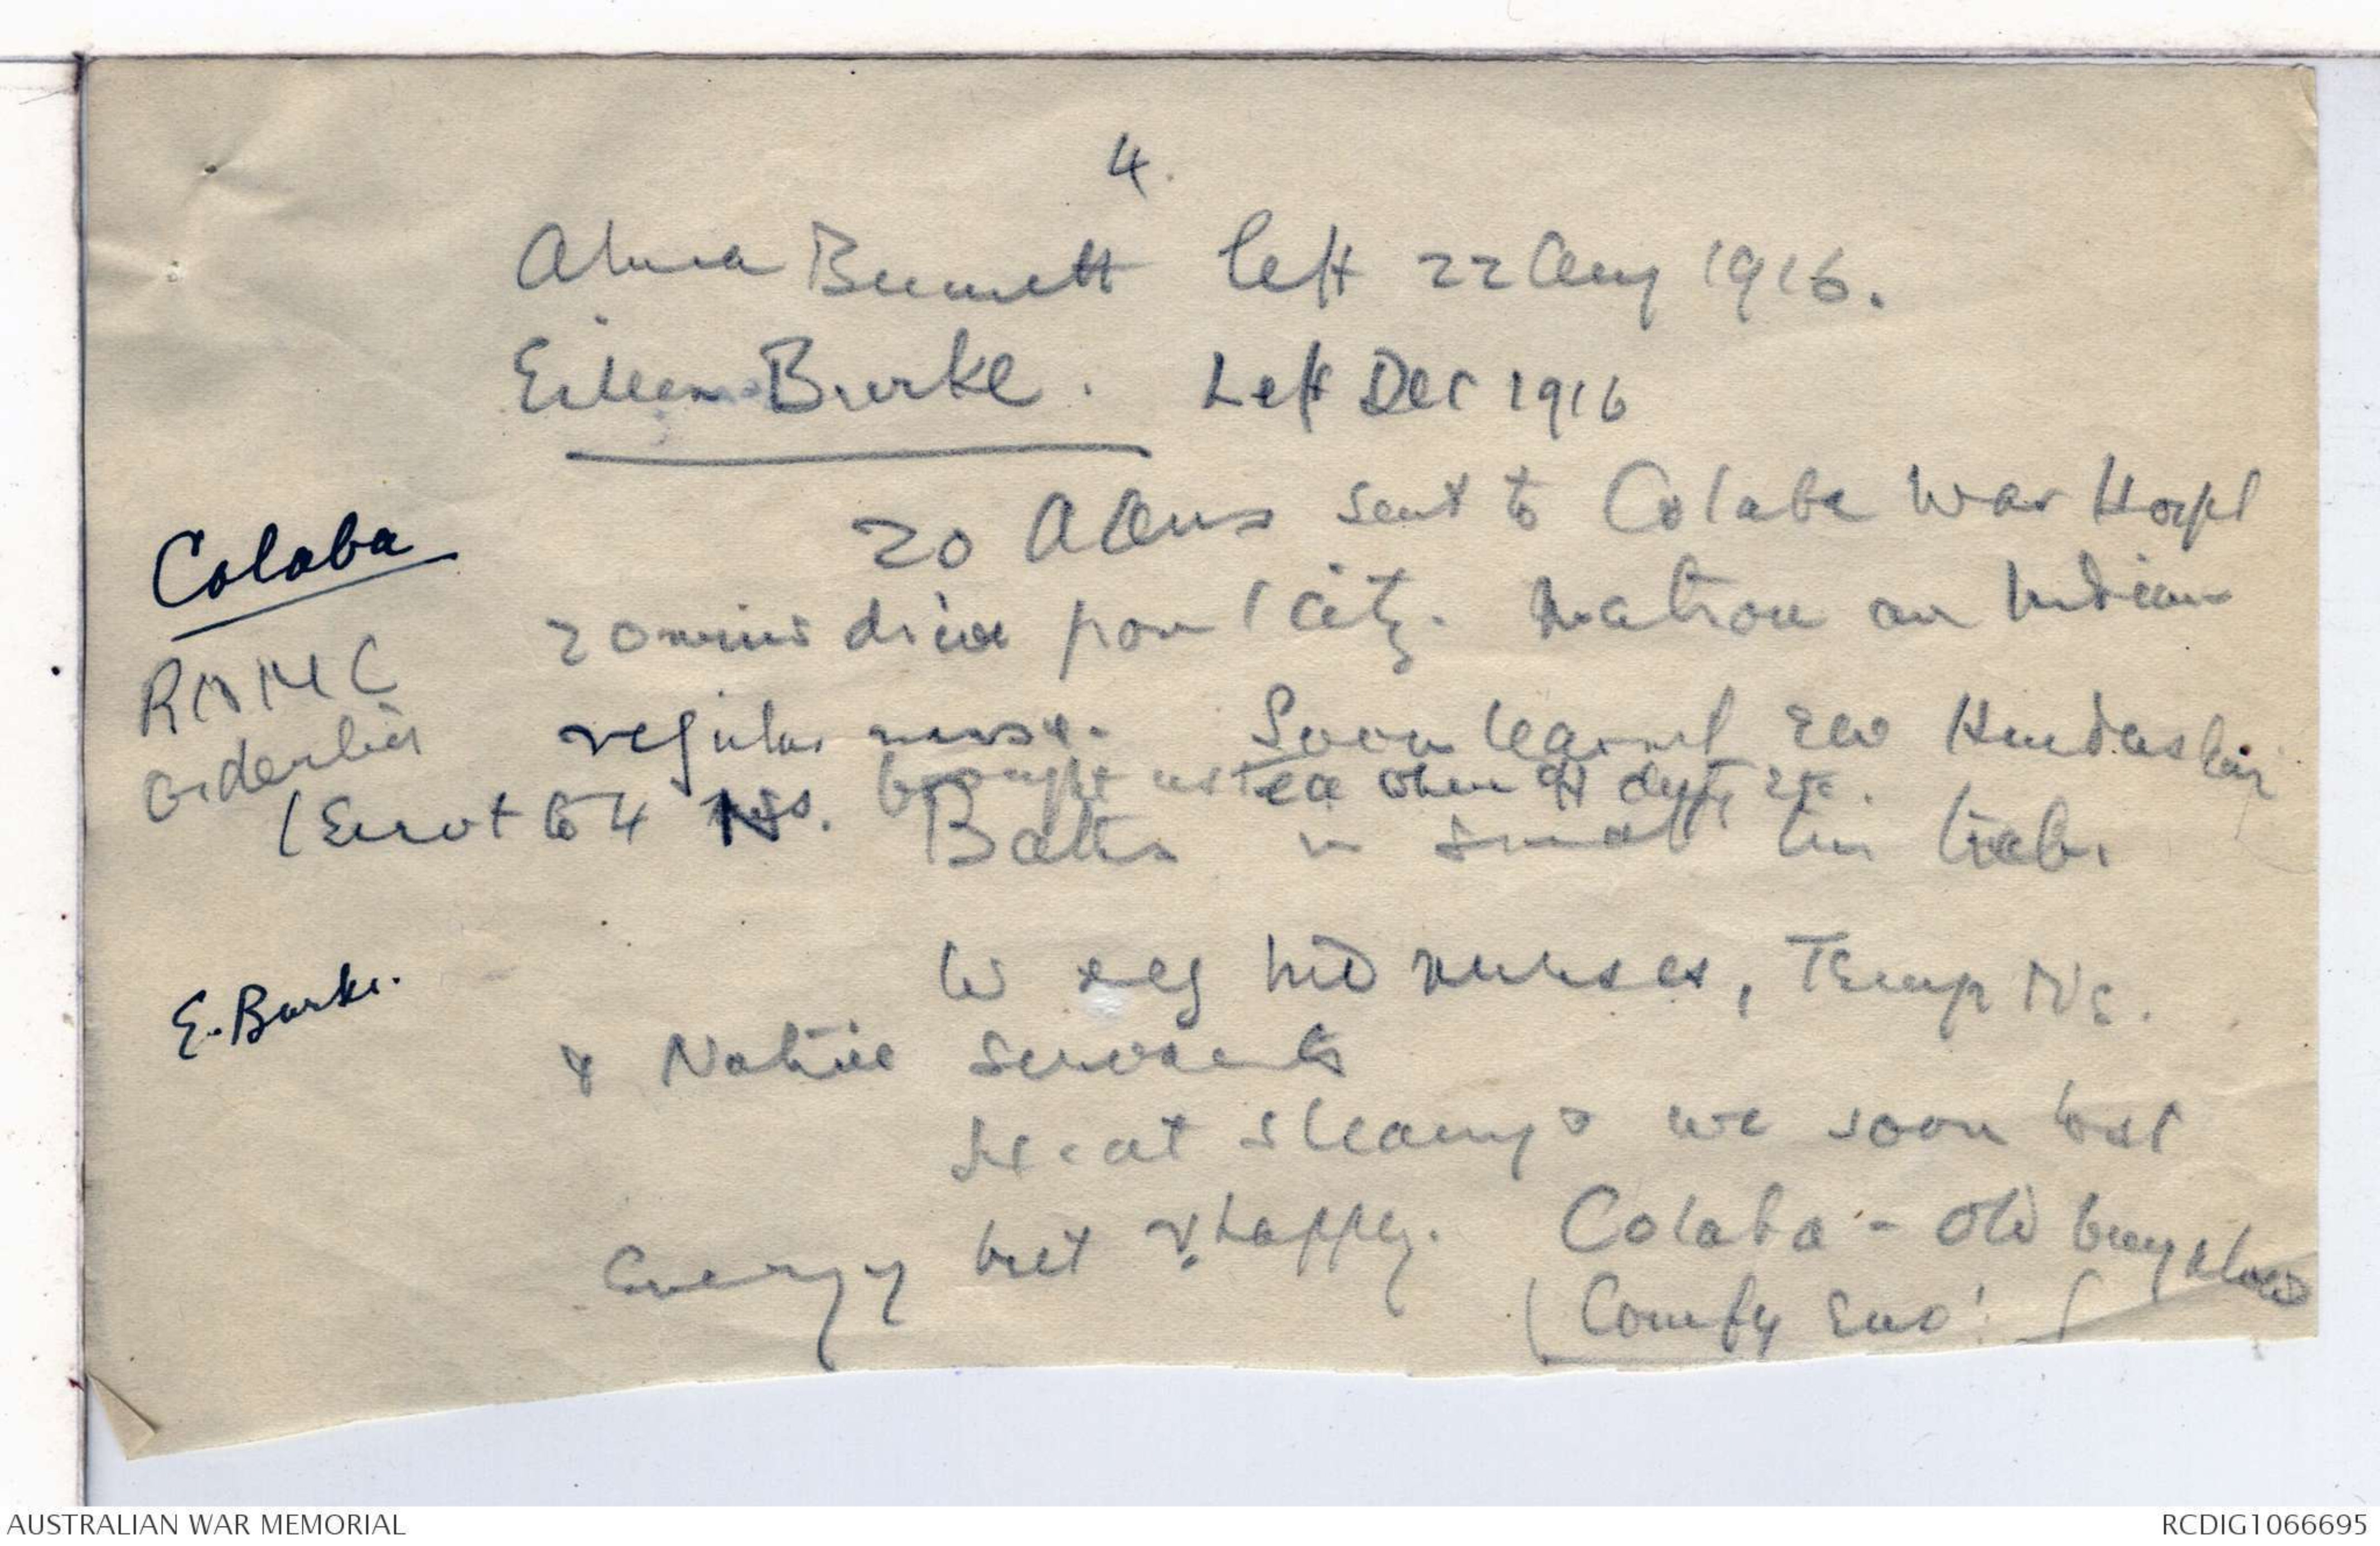 4.
Alma Bennett left 22 Aug 1916.
Eileen Burke. Left Dec 1916
20 sent to Colaba War Hospl
Colaba
20 mins drive from 1 city. Matron an Indian
RAMC
orderlies
regular nurse. Soon learnt eno Hindustani
(Servt to 4 Ns. brought us tea when off duty etc.
Baths in small tin
E. Burke.
nurses, Temp Ns.
& Native servants
Heat steamy & we soon lost
energy but v. happy. Colaba - old bungalow
(Comfy eno'
AUSTRALIAN WAR MEMORIAL
RCDIG1066695